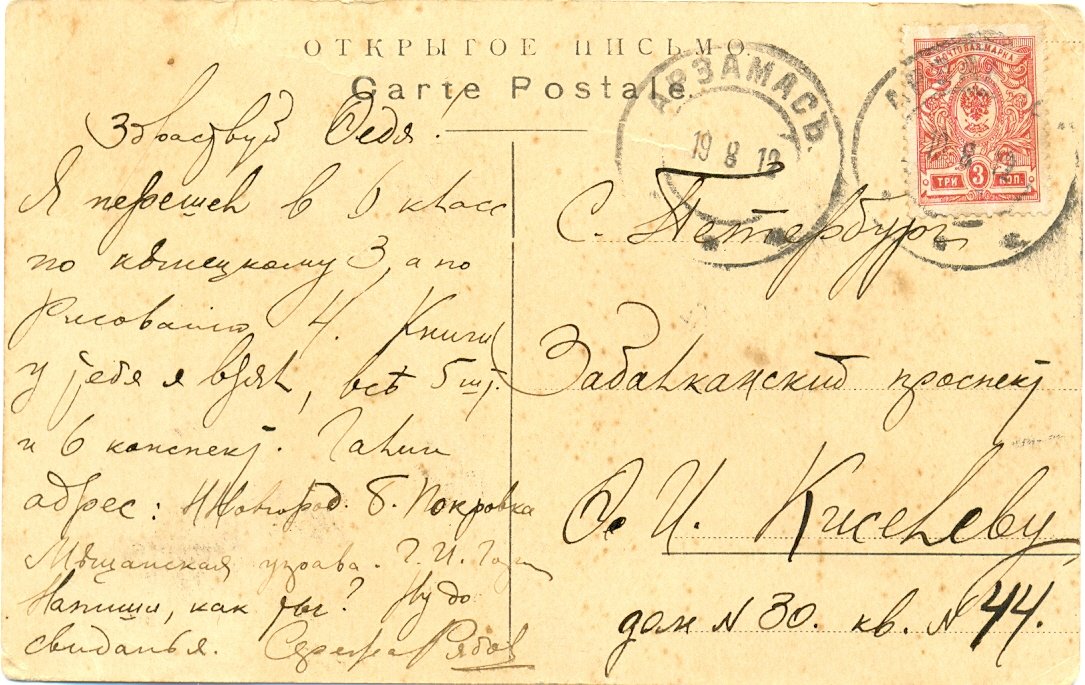 ОТКРЫТОЕ ПИСЬМО
Carte Postale
АРЗАМАСЪ
19 8 12
ПОЧТОВАЯ МАРКА
ТРИ 3 КОП.
Здраствуй Федя!
Я перешел в 6 класс
по нѣмецкому 3, а по
рисованию 4. Книги
у тебя я взял, всѣ 5 шт.
и 6 конспект. Галин
адрес: Н Новгород. Б. Покровка
Мѣщанская управа. Г. И.
Напиши, как ты? Ну до
свиданья. Сережа Рябов
С. Петербург
Забалканский проспект
Ф. И. Киселеву
дом N 30. кв. N 44.